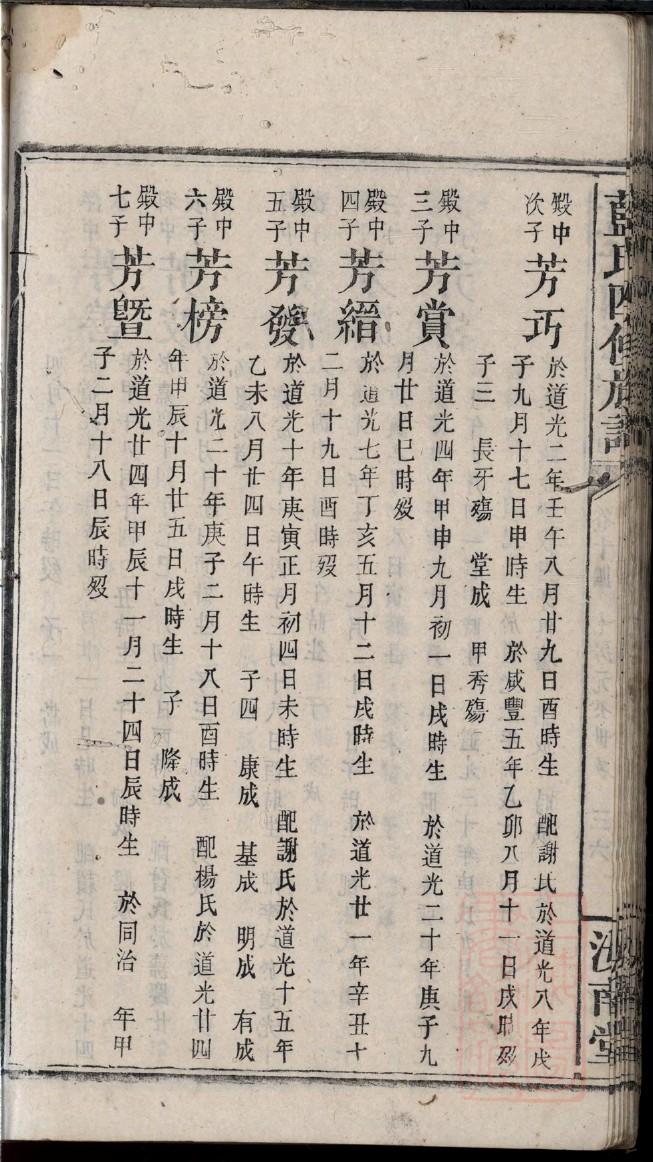 藍氏四修族譜
汝南堂
殿中
次子
芳巧
於道光二年壬午八月廿九日酉時生 配謝氏於道光八年戊
子九月十七日申時生 於咸豐五年乙卯八月十一日戌時歿
子三 長牙殤 堂成 甲秀殤
殿中
三子
芳賞
於道光四年甲申九月初一日戌時生 於道光二十年庚子九
月廿日巳時歿
殿中
四子
芳縉
於道光七年丁亥五月十二日戌時生 於道光廿一年辛丑十
二月十九日酉時歿
殿中
五子
芳發
於道光十年庚寅正月初四日未時生 配謝氏於道光十五年
乙未八月廿四日午時生 子四 康成 基成 明成 有成
殿中
六子
芳榜
於道光二十年庚子二月十八日酉時生 配楊氏於道光廿四
年甲辰十月廿五日戌時生 子 隆成
殿中
七子
芳暨
於道光廿四年甲辰十一月二十四日辰時生 於同治 年甲
子二月十八日辰時歿